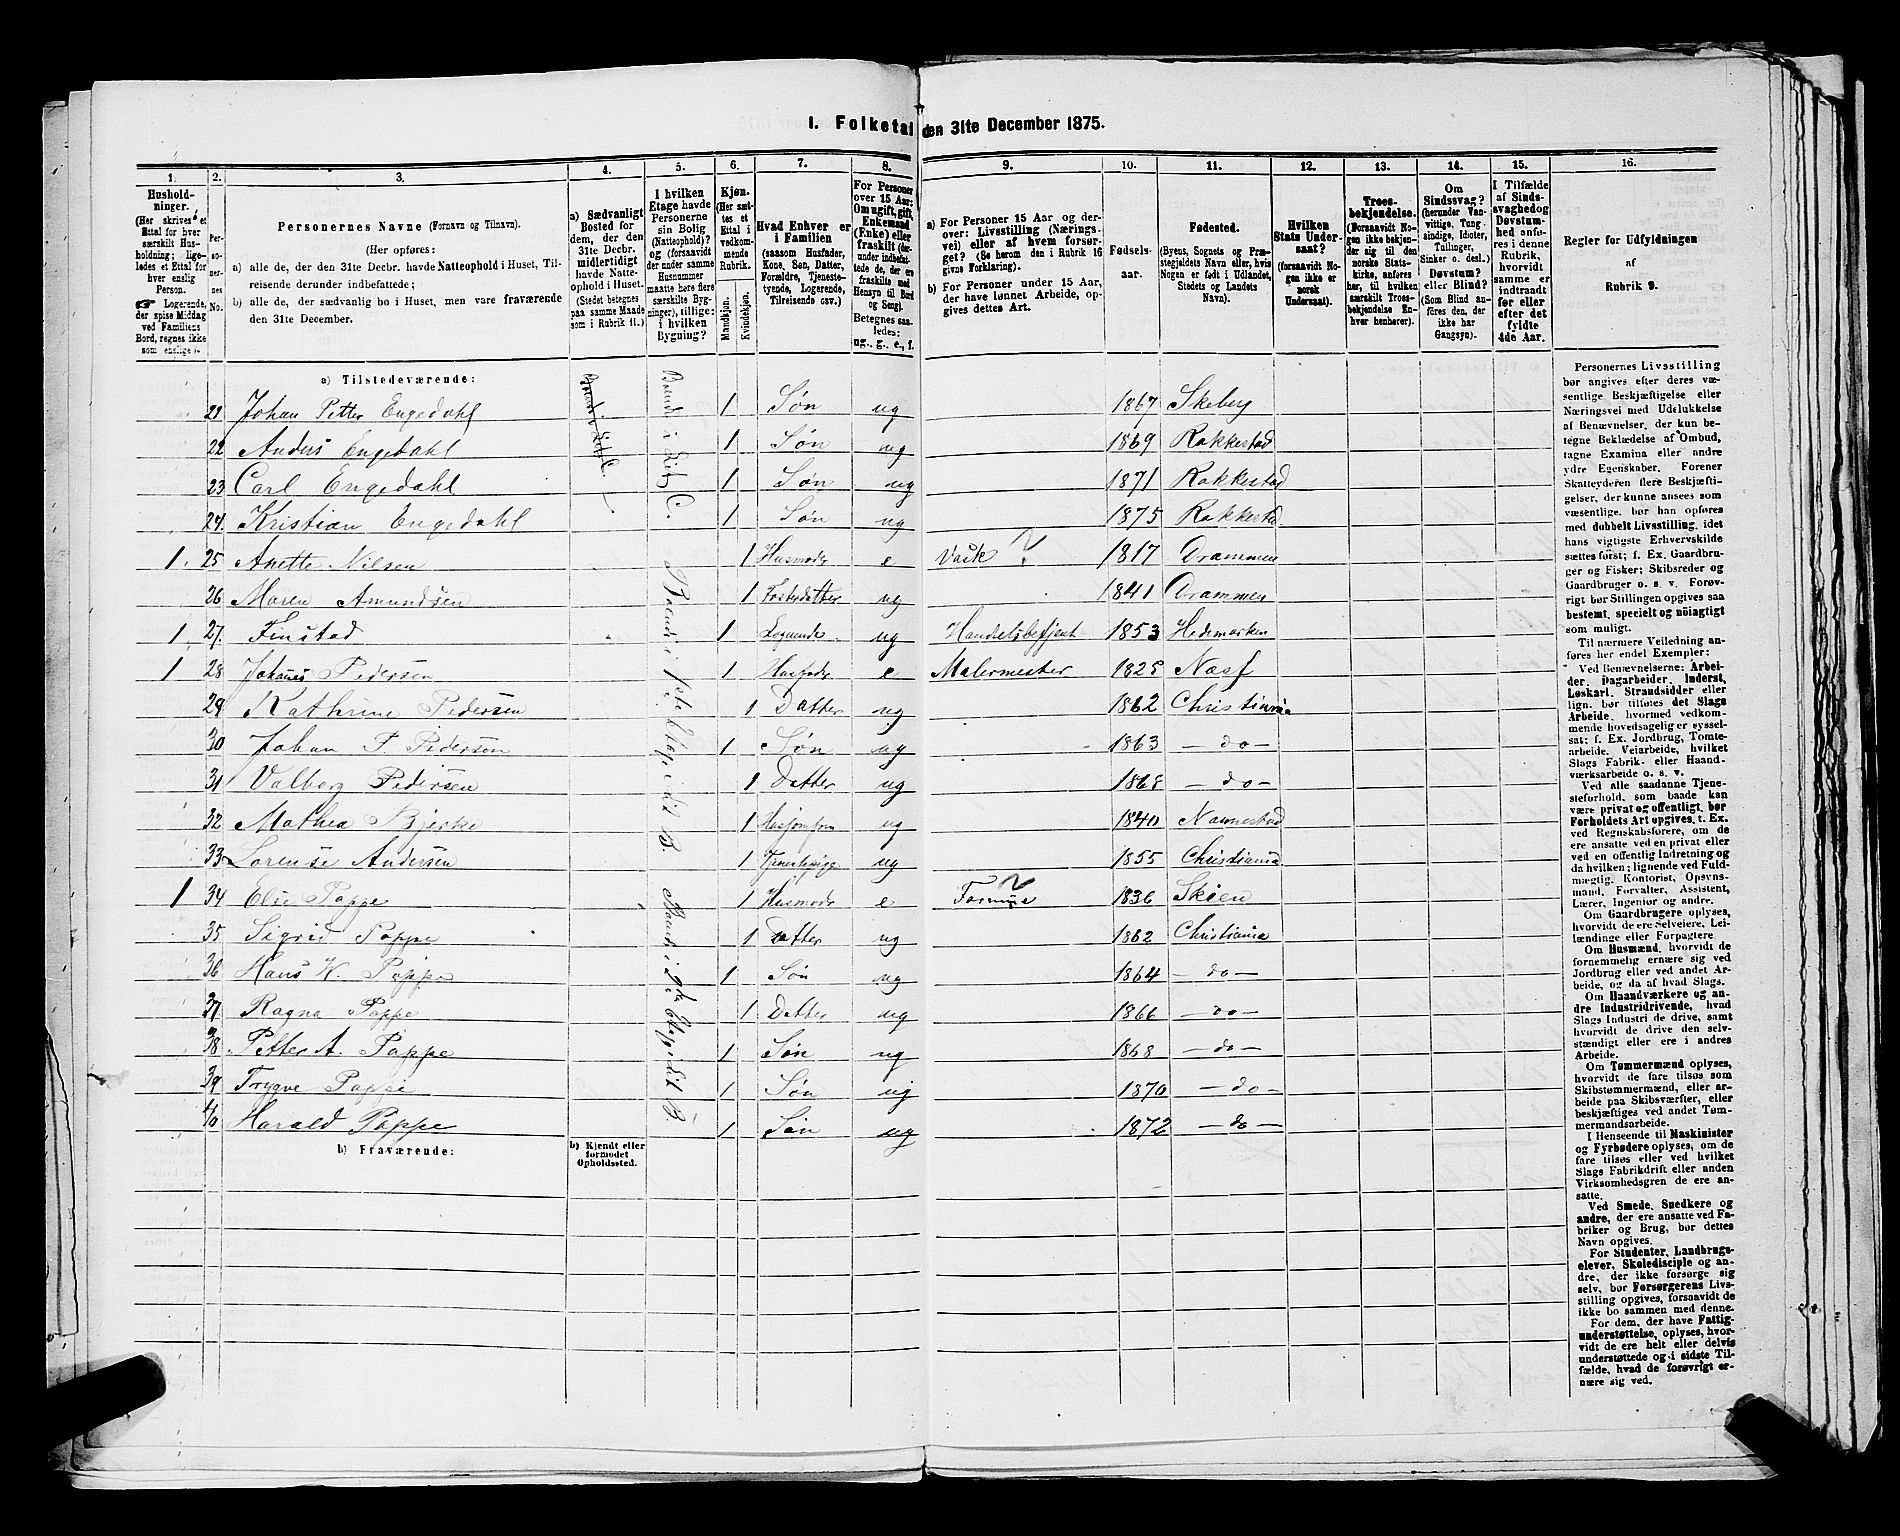 I. Folketal den 31te December 1875.
1. 2. 3. 4. 5. 6. 7. 8. 9. 10. 11. 12. 13. 14. 15. 16.
Hushold-
ninger.
(Her skrives et
Ettal for hver
særskilt Hus-
holdning; lige-
ledes et Ettal for
hver enslig
Person.
☞ Logerende,
der spise Middag
ved Familiens
Bord, regnes ikke
som enslige).
Per-
so-
ner-
nes
No.
Personernes Navne (Fornavn og Tilnavn).
(Her opføres:
a) alle de, der den 31te Decbr. havde Natteophold i Huset, Til-
reisende derunder indbefattede;
b) alle de, der sædvanlig bo i Huset, men vare fraværende
den 31te December.
a) Sædvanligt
Bosted for
dem, der den
31te Decbr.
midlertidigt
havde Natte-
ophold i Huset.
(Stedet betegnes
paa samme Maade
som i Rubrik 11.)
I hvilken
Etage havde
Personerne
sin Bolig
(Natteophold)?
og (forsaavidt
der under samme
Husnummer
maatte høre flere
særskilte Byg-
ninger), tillige:
i hvilken
Bygning?
Kjøn.
(Her sæt-
tes et
Ettal i
vedkom-
mende
Rubrik.
Mandkjøn.
Kvindekjøn.
Hvad Enhver er
i Familien
(saasom Husfader,
Kone, Søn, Datter,
Forældre, Tjeneste-
tyende, Logerende,
Tilreisende osv.)
For Personer
over 15 Aar:
Om ugift, gift,
Enkemand
(Enke) eller
fraskilt (der-
under indbefat-
tede de, der ere
fraskilte med
Hensyn til Bord
og Seng).
Betegnes saa-
ledes:
ug., g., e., f.
a) For Personer 15 Aar og der-
over: Livsstilling (Nærings-
vei) eller af hvem forsør-
get? (Se herom den i Rubrik 16
givne Forklaring).
b) For Personer under 15 Aar,
der have lønnet Arbeide, op-
gives dettes Art.
Fødsels-
aar.
Fødested.
(Byens, Sognets og Præ-
stegjeldets Navn eller, hvis
Nogen er født i Udlandet,
Stedets og Landets
Navn).
Hvilken
Stats Under-
saat?
(forsaavidt No-
gen ikke er
norsk
Undersaat).
Troes-
bekjendelse.
(Forsaavidt No-
gen ikke bekjen-
der sig til den
norske Stats-
kirke, anføres
her, til hvilken
særskilt Troes-
bekjendelse En-
hver henhører).
Om
Sindssvag?
(herunder Van-
vittige, Tung-
sindige, Idioter,
Tullinger,
Sinker o. desl.)
Døvstum?
eller Blind?
(Som Blind an-
føres den, der
ikke har
Gangsyn).
I Tilfælde
af Sinds-
svaghed og
Døvstum-
hed anfø-
res i denne
Rubrik,
hvorvidt
samme er
indtraadt
før eller
efter det
fyldte
4de Aar.
Regler for Udfyldningen
af
Rubrik 9.
a) Tilstedeværende:
Boende i Litr C.
Boende i Litr C.
21 Johan Petter Engedahl 1 Søn ug 1867 Skeberg
22 Anders Engedahl 1 Søn ug 1869 Rakkestad
23 Carl Engedahl 1 Søn ug 1871 Rakkestad
24. Kristian Engedahl 1 Søn ug 1875 Rakkestad
1. 25 Anette Nilsen 1 Husmoder e Vask ? 1817 Drammen
26 Maren Amundsen 1 Fosterdatter ug 1841 Drammen
1 27. Finstad 1 Logerende ug Handelsbetjent 1853 Hedemarken
1 28 Johanes Pedersen 1 Husfader e Malermester 1825 Næss
29 Kathrine Pedersen 1 Datter ug 1862 Christiania
30 Johan P Pedersen 1 Søn ug 1863 – do –
31 Valborg Pedersen 1 Datter ug 1868 – do –
32 Mathea Bjerke 1 Husjomfru ug 1840 Nannestad
33 Lorense Andersen 1 Tjenestepige ug 1855 Christiania
1 34 Else Poppe 1 Husmoder e Formue 1836 Skien
35 Sigrid Poppe 1 Datter ug 1862 Christiania
36 Hans K. Poppe 1 Søn ug 1864 – do –
37 Ragna Poppe 1 Datter ug 1866 – do –
38 Petter A. Poppe 1 Søn ug 1868 – do –
39 Trygve Poppe 1 Søn ug 1870 – do –
40 Harald Poppe 1 Søn ug 1872 – do –
Boende i 1ste Etage i Lit B.
Boende i 2den Etage Lit B.
b) Fraværende:
b) Kjendt eller
formodet
Opholdssted.
Personernes Livsstilling
bør angives efter deres væ-
sentlige Beskjæftigelse eller
Næringsvei med Udelukkelse
af Benævnelser, der kun be-
tegne Beklædelse af Ombud,
tagne Examina eller andre
ydre Egenskaber. Forener
Skatteyderen flere Beskjæfti-
gelser, der kunne ansees som
væsentlige, bør han opføres
med dobbelt Livsstilling, idet
hans vigtigste Erhvervskilde
sættes først; f. Ex. Gaardbru-
ger og Fisker; Skibsreder og
Gaardbruger o. s. v. Forøv-
rigt bør Stillingen opgives saa
bestemt, specielt og nøiagtigt
som muligt.
Til nærmere Veiledning an-
føres her endel Exempler:
Ved Benævnelserne: Arbei-
der, Dagarbeider, Inderst,
Løskarl, Strandsidder eller
lign. bør tilføies det Slags
Arbeide, hvormed vedkom-
mende hovedsagelig er syssel-
sat; f. Ex. Jordbrug, Tomte-
arbeide, Veiarbeide, hvilket
Slags Fabrik- eller Haand-
værksarbeide o. s. v.
Ved alle saadanne Tjene-
steforhold, som baade kan
være privat og offentligt, bør
Forholdets Art opgives, t. Ex.
ved Regnskabsførere, om de
ere ansatte ved en privat eller
ved en offentlig Indretning og
da hvilken; lignende ved Fuld-
mægtig, Kontorist, Opsyns-
mand, Forvalter, Assistent,
Lærer, Ingeniør og andre.
Om Gaardbrugere oplyses,
hvorvidt de ere Selveiere, Lei-
lændinge eller Forpagtere
Om Husmænd, hvorvidt de
fornemmelig ernære sig ved
Jordbrug eller ved andet Ar-
beide, og da af hvad Slags.
Om Haandværkere og an-
dre Industridrivende, hvad
Slags Industri de drive, samt
hvorvidt de drive den selv-
stændigt eller ere i andres
Arbeide.
Om Tømmermænd oplyses,
hvorvidt de fare tilsøs som
Skibstømmermænd, eller ar-
beide paa Skibsværfter, eller
beskjæftiges ved andet Tøm-
mermandsarbeide.
I Henseende til Maskinister
og Fyrbødere oplyses, om de
fare tilsøs eller ved hvilket
Slags Fabrikdrift eller anden
Virksomhedsgren de ere an-
satte.
Ved Smede, Snedkere og
andre, der ere ansatte ved Fa-
briker og Brug, bør dettes
Navn opgives.
For Studenter, Landbrugs-
elever, Skoledisciple og an-
dre, der ikke forsørge sig
selv, bør Forsørgerens Livs-
stilling opgives, forsaavidt de
ikke bo sammen med denne.
For dem, der have Fattig-
understøttelse, oplyses, hvor-
vidt de ere helt eller delvis
understøttede og i sidste Til-
fælde, hvad de forøvrigt er-
nære sig ved.